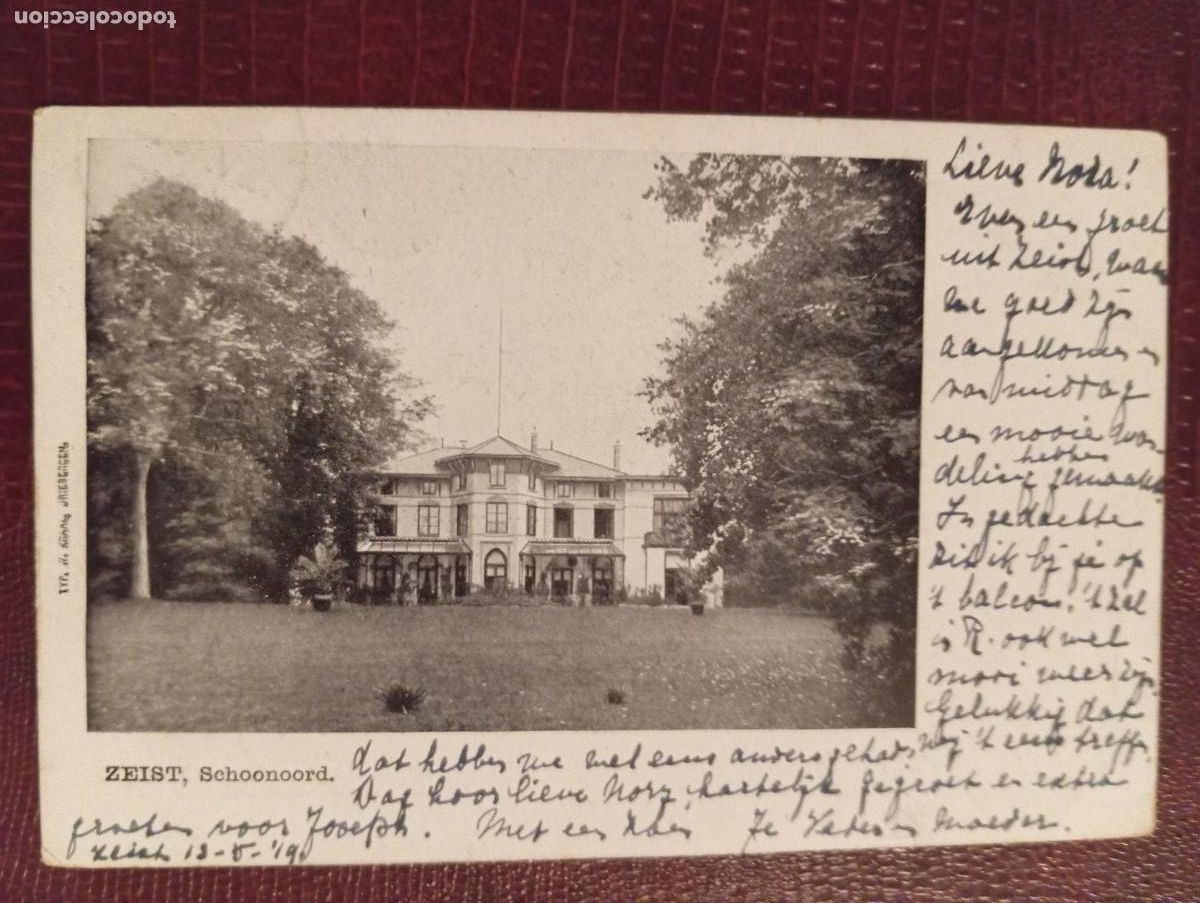 todocoleccion
Lieve Nora!
Even een groet
uit Zeist, waar
we goed zijn
aangekomen en
van middag
een mooie wan-
hebben
deling gemaakt
In gedachte
zit ik bij je op
't balcon, 't zal
in R. ook wel
mooi weer zijn
Gelukkig dat wij 't eens treffen
dat hebben we wel eens anders gehad
Dag hoor lieve Nora, hartelijk gegroet en extra
groeten voor Joseph. Met een zoen Je Vader en Moeder.
Zeist 13-5-'19
ZEIST, Schoonoord.
TYP. H. KÜHNE, DRIEBERGEN.